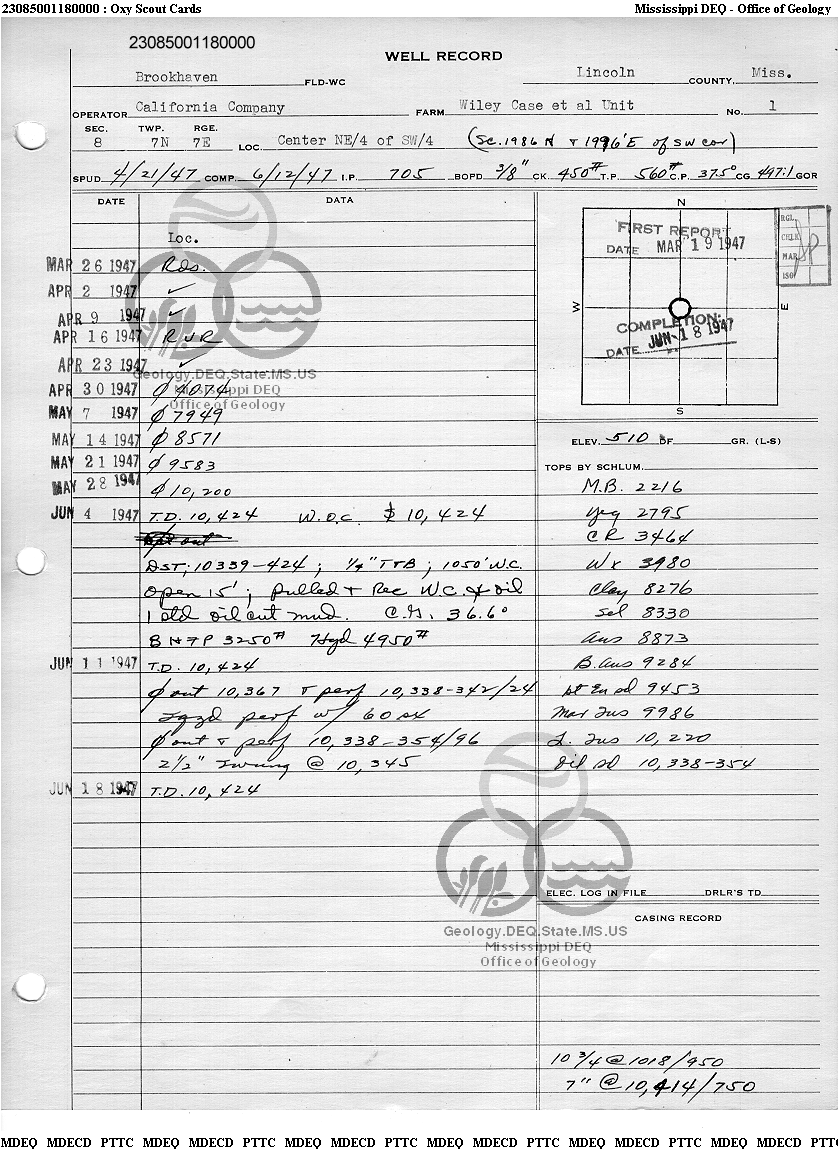 23085001180000 : Oxy Scout Cards Mississippi DEQ - Office of Geology
23085001180000
WELL RECORD
Brookhaven FLD-WC Lincoln COUNTY, Miss.
OPERATOR California Company FARM Wiley Case et al Unit No. 1
SEC. TWP. RGE.
8 7N 7E LOC. Center NE/4 of SW/4 (Sc. 1986 N & 1996'E of SW cor)
SPUD 4/21/47 COMP. 6/12/47 I.P. 705 BOPD 3/8" CK. 450# T.P. 560# C.P. 37.5° CG 497:1 GOR
DATE DATA
Loc.
MAR 26 1947 Rds.
APR 2 1947 ✓
APR 9 1947 ✓
APR 16 1947 RUR
APR 23 1947 ✓
Geology.DEQ.State.MS.US
Mississippi DEQ
Office of Geology
APR 30 1947 Ø 4074
MAY 7 1947 Ø 7949
MAY 14 1947 Ø 8571
MAY 21 1947 Ø 9583
MAY 28 1947 Ø 10,200
JUN 4 1947 T.D. 10,424 W.O.C. $ 10,424
DST; 10339-424; 1/4" T&B; 1050' W.C.
open 15'; pulled & Rec W.C. & oil
1 std oil cut mud. C.G. 36.6°
BHFP 3250# Hyd 4950#
JUN 11 1947 T.D. 10,424
Ø out 10,367 & perf 10,338-342/24
Sqzd perf w/ 60 sx
Ø out & perf 10,338-354/96
2 1/2" Swung @ 10,345
JUN 18 1947 T.D. 10,424
N
FIRST REPORT
DATE MAR 19 1947
RGL
CHLK
MAR
ISO
W E
COMPLETION:
DATE JUN 18 1947
S
ELEV. 510 DF GR. (L-S)
TOPS BY SCHLUM.
M.B. 2216
Yeg 2795
CR 3464
Wx 3980
Clay 8276
Sel 8330
Aus 8873
B. Aus 9284
9453
Mar Tus 9986
L. Tus 10,220
Oil Sd 10,338-354
ELEC. LOG IN FILE DRLR'S TD
CASING RECORD
Geology.DEQ.State.MS.US
Mississippi DEQ
Office of Geology
10 3/4 @ 1018/950
7" @ 10,414/750
MDEQ MDECD PTTC MDEQ MDECD PTTC MDEQ MDECD PTTC MDEQ MDECD PTTC MDEQ MDECD PTTC MDEQ MDECD PTTC